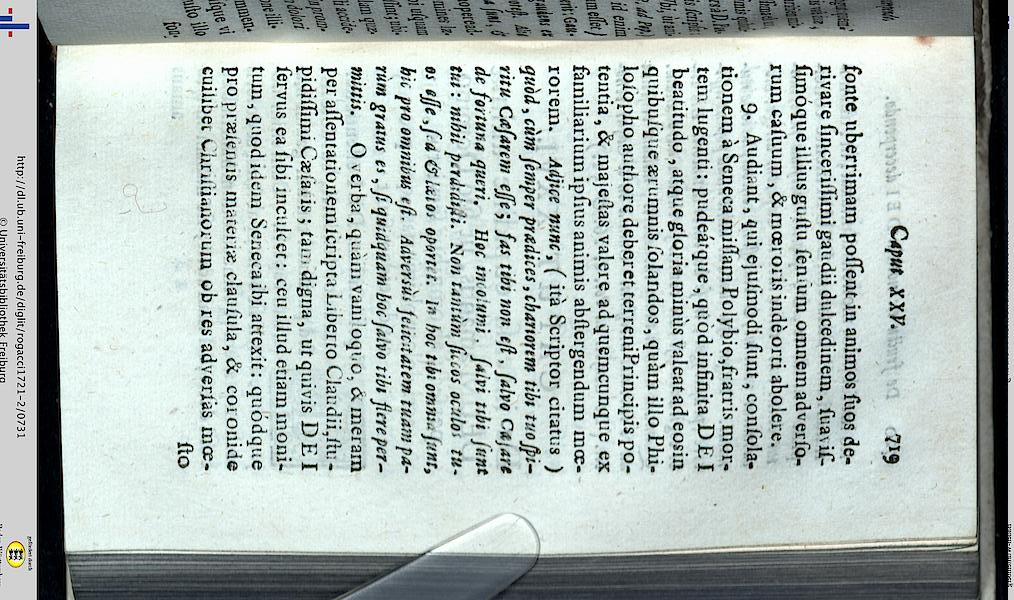 Caput XXV. 719
fonte uberrimam possent in animos suos de-
rivare sincerissimi gaudii dulcedinem, suavis-
simóque illius gustu senium omnem adverso-
rum casuum, & mœroris indè orti abolere.
9. Audiant, qui ejusmodi sunt, consola-
tionem à Seneca missam Polybio, fratris mor-
tem lugenti; pudeátque, quòd infinita DEI
beatitudo, atque gloria minus valeat ad eos in
quibusque ærumnis solandos, quàm illo Phi-
losopho authore deberet terreni Principis po-
tentia, & majestas valere ad quemcunque ex
familiarium ipsius animis abstergendum mœ-
rorem. Adjice nunc, (ità Scriptor citatus)
quòd, cùm semper prædices, chariorem tibi tuo spi-
ritu Cæsarem esse; fas tibi non est, salvo Cæsare
de fortuna queri. Hoc incolumi, salvi tibi sunt
tui: nihil perdidisti. Non tantùm siccos oculos tu-
os esse, sed & lætos oportet. In hoc tibi omnia sunt,
hic pro omnibus est. Adversùs felicitatem tuam pa-
rum gratus es, si quidquam hoc salvo tibi flere per-
mittis. O verba, quàm vaniloquo, & meram
per assentationem scripta Liberto Claudii, stu-
pidissimi Cæsaris; tam digna, ut quivis DEI
servus ea sibi inculcet: ceu illud etiam moni-
tum, quod idem Seneca ibi attexit: quódque
pro præsentis materiæ clausula, & coronide
cuilibet Christianorum ob res adversas mœ-
sto
http://dl.ub.uni-freiburg.de/diglit/rogacci1721-2/0731
© Universitätsbibliothek Freiburg
gefördert durch